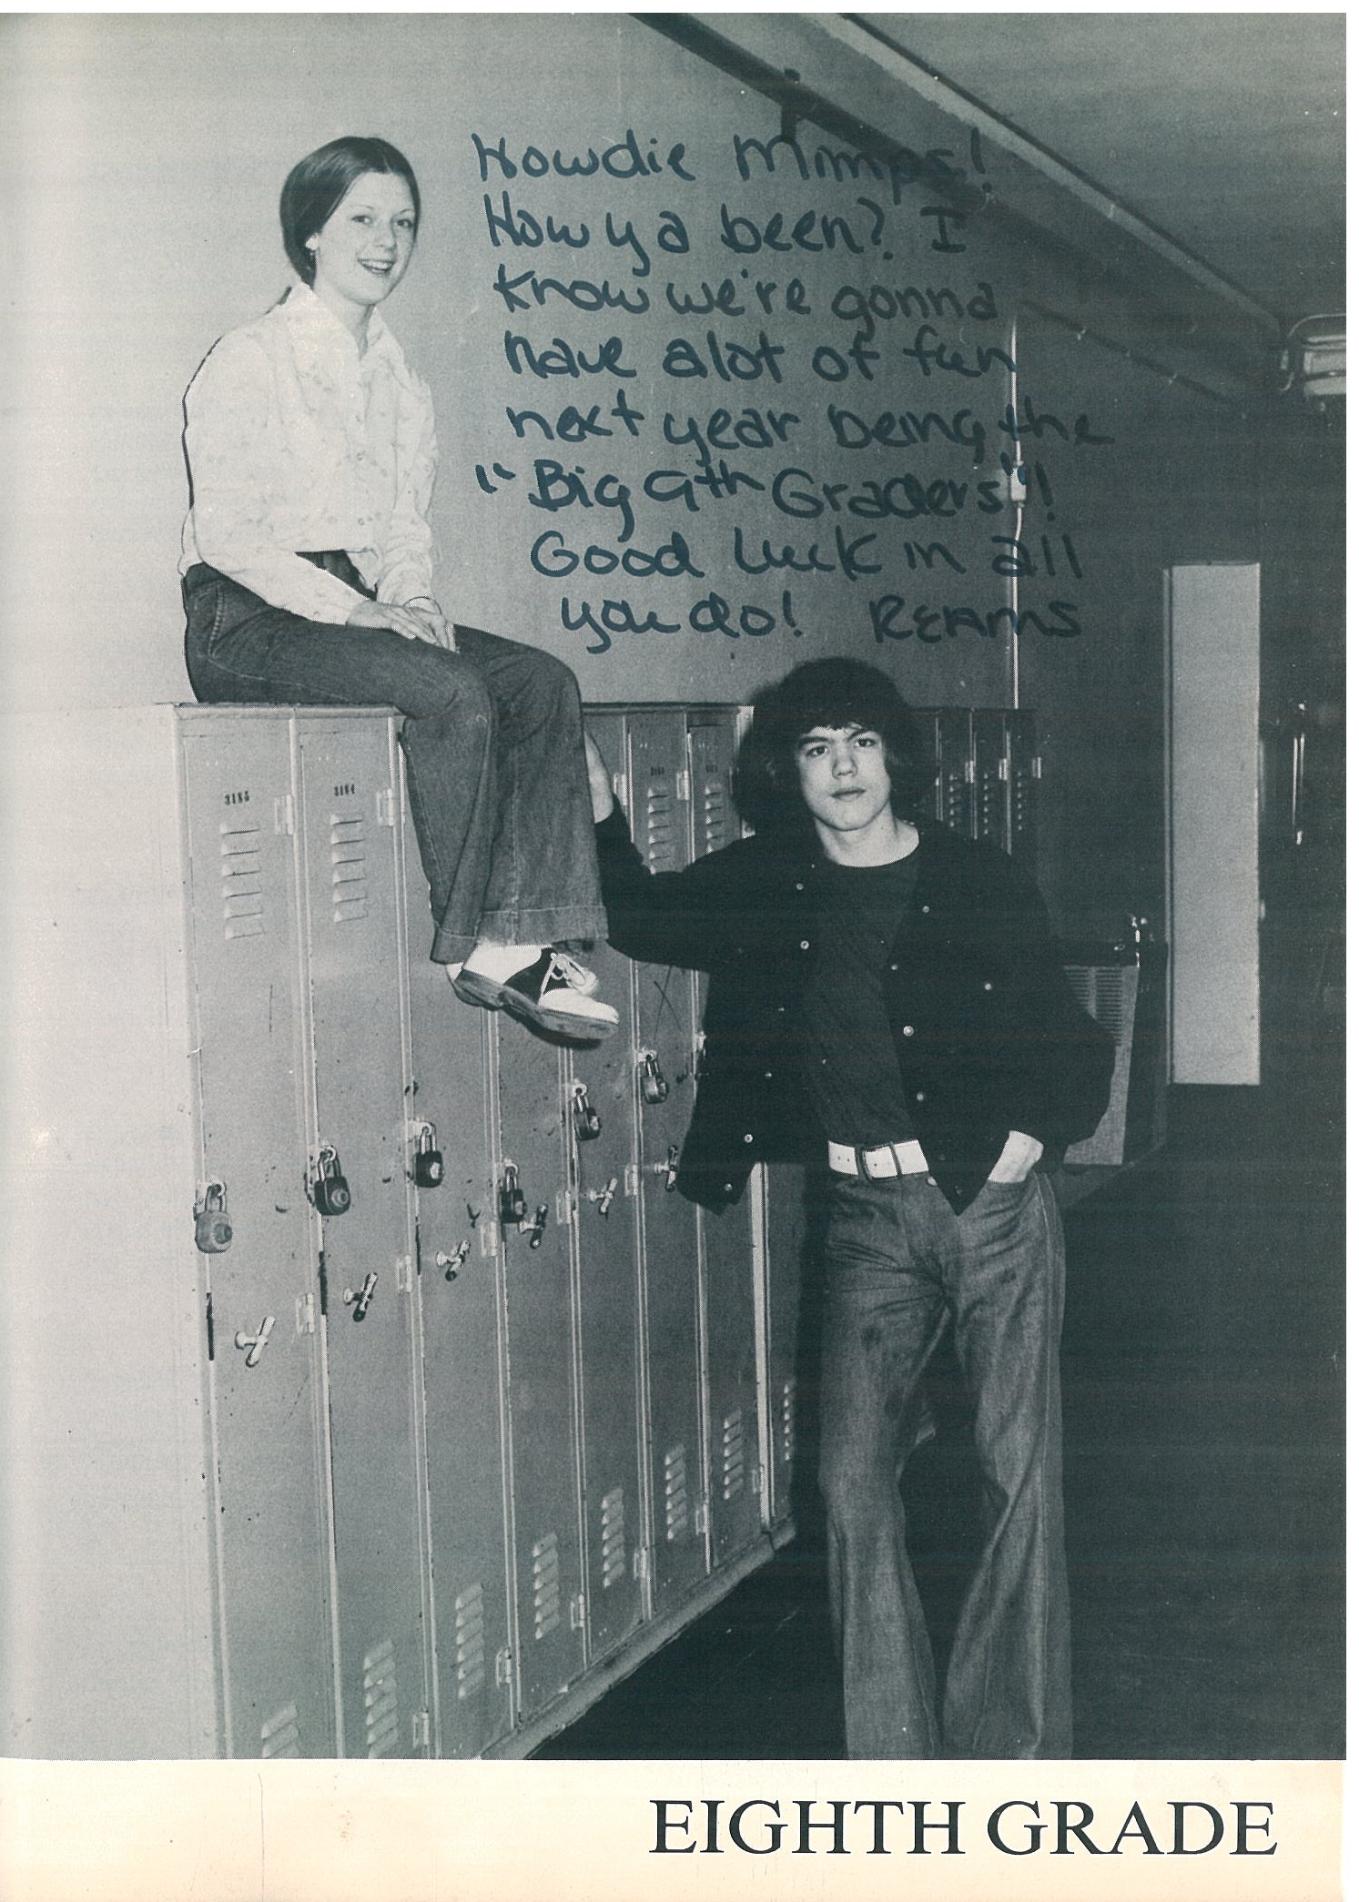 Howdie Mimps!
How ya been? I
know we're gonna
have alot of fun
next year being the
"Big 9th Graders"!
Good luck in all
you do! REAMS
3185
3184
EIGHTH GRADE